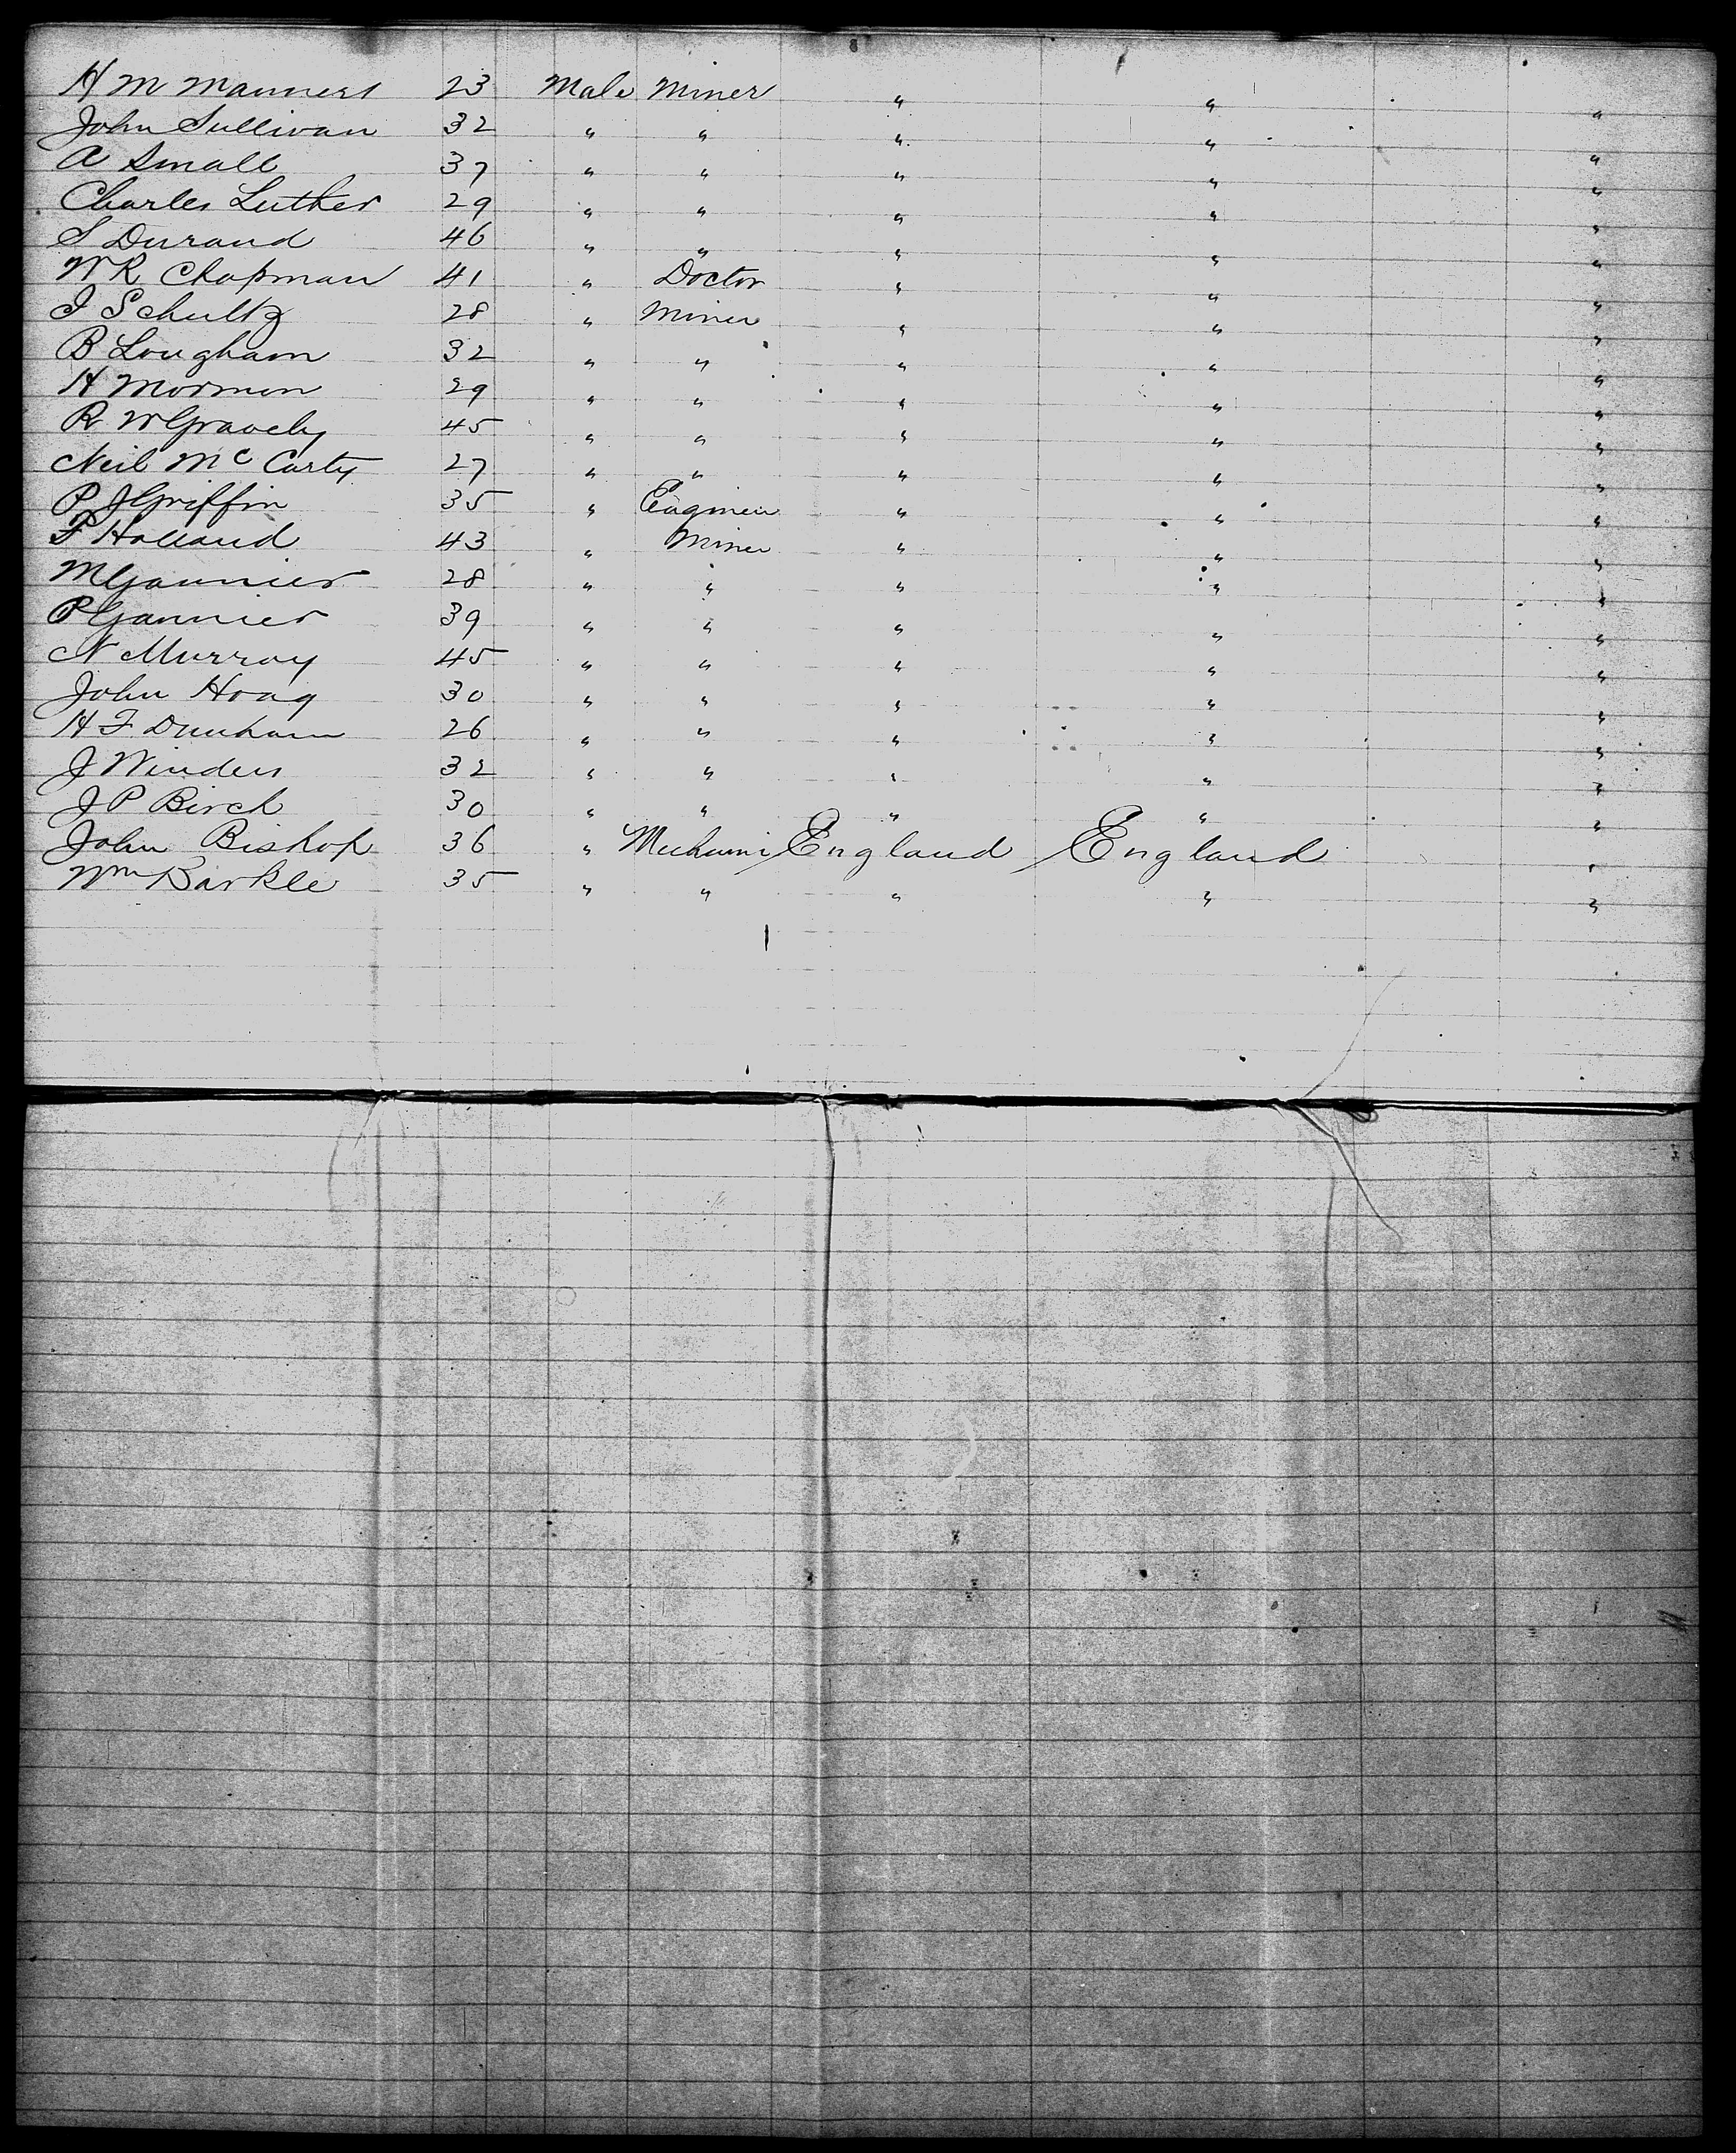 H M Manners 23 Male Miner " " "
John Sullivan 32 " " " " "
A Small 37 " " " " "
Charles Luther 29 " " " " "
S Durand 46 " " " " "
W R Chapman 41 " Doctor " " "
J Schultz 28 " Miner " " "
B Lougham 32 " " " " "
H Mormon 29 " " " " "
R W Gravely 45 " " " " "
Neil Mc Carty 27 " " " " "
P J Griffin 35 " Engineer " " "
F Holland 43 " Miner " " "
M Gannier 28 " " " " "
P Gannier 39 " " " " "
N Murray 45 " " " " "
John Hoag 30 " " " " "
H F Dunham 26 " " " " "
J Winders 32 " " " " "
J P Birch 30 " " " " "
John Bishop 36 " Mechanic England England "
Wm Barkle 35 " " " " "